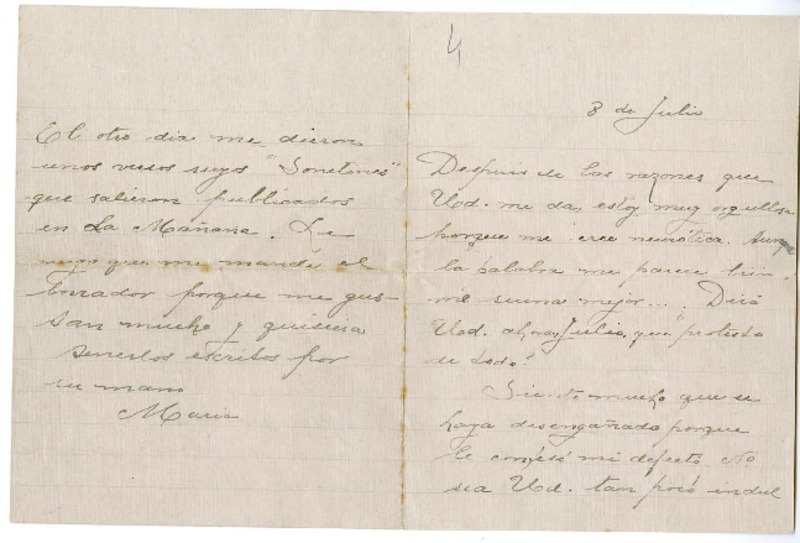 4
8 de Julio
Despues de las razones que
Usd. me da, estoy muy orgullosa
porque me cree neurótica. Aunqe
la palabra me parece bien.
me suena mejor... Dirá
Usd. ahora, Julio, que "protesto
de todo".
Siento mucho que se
haya desengañado porque
le confesé mi defecto. No
sea Usd. tan poco indul
El otro dia me dieron
unos versos suyos "Sonetines"
que salieron publicados
en La Mañana. Le
ruego que me mande el
borrador porque me gus-
tan mucho y quisiera
tenerlos escritos por
su mano
Maria